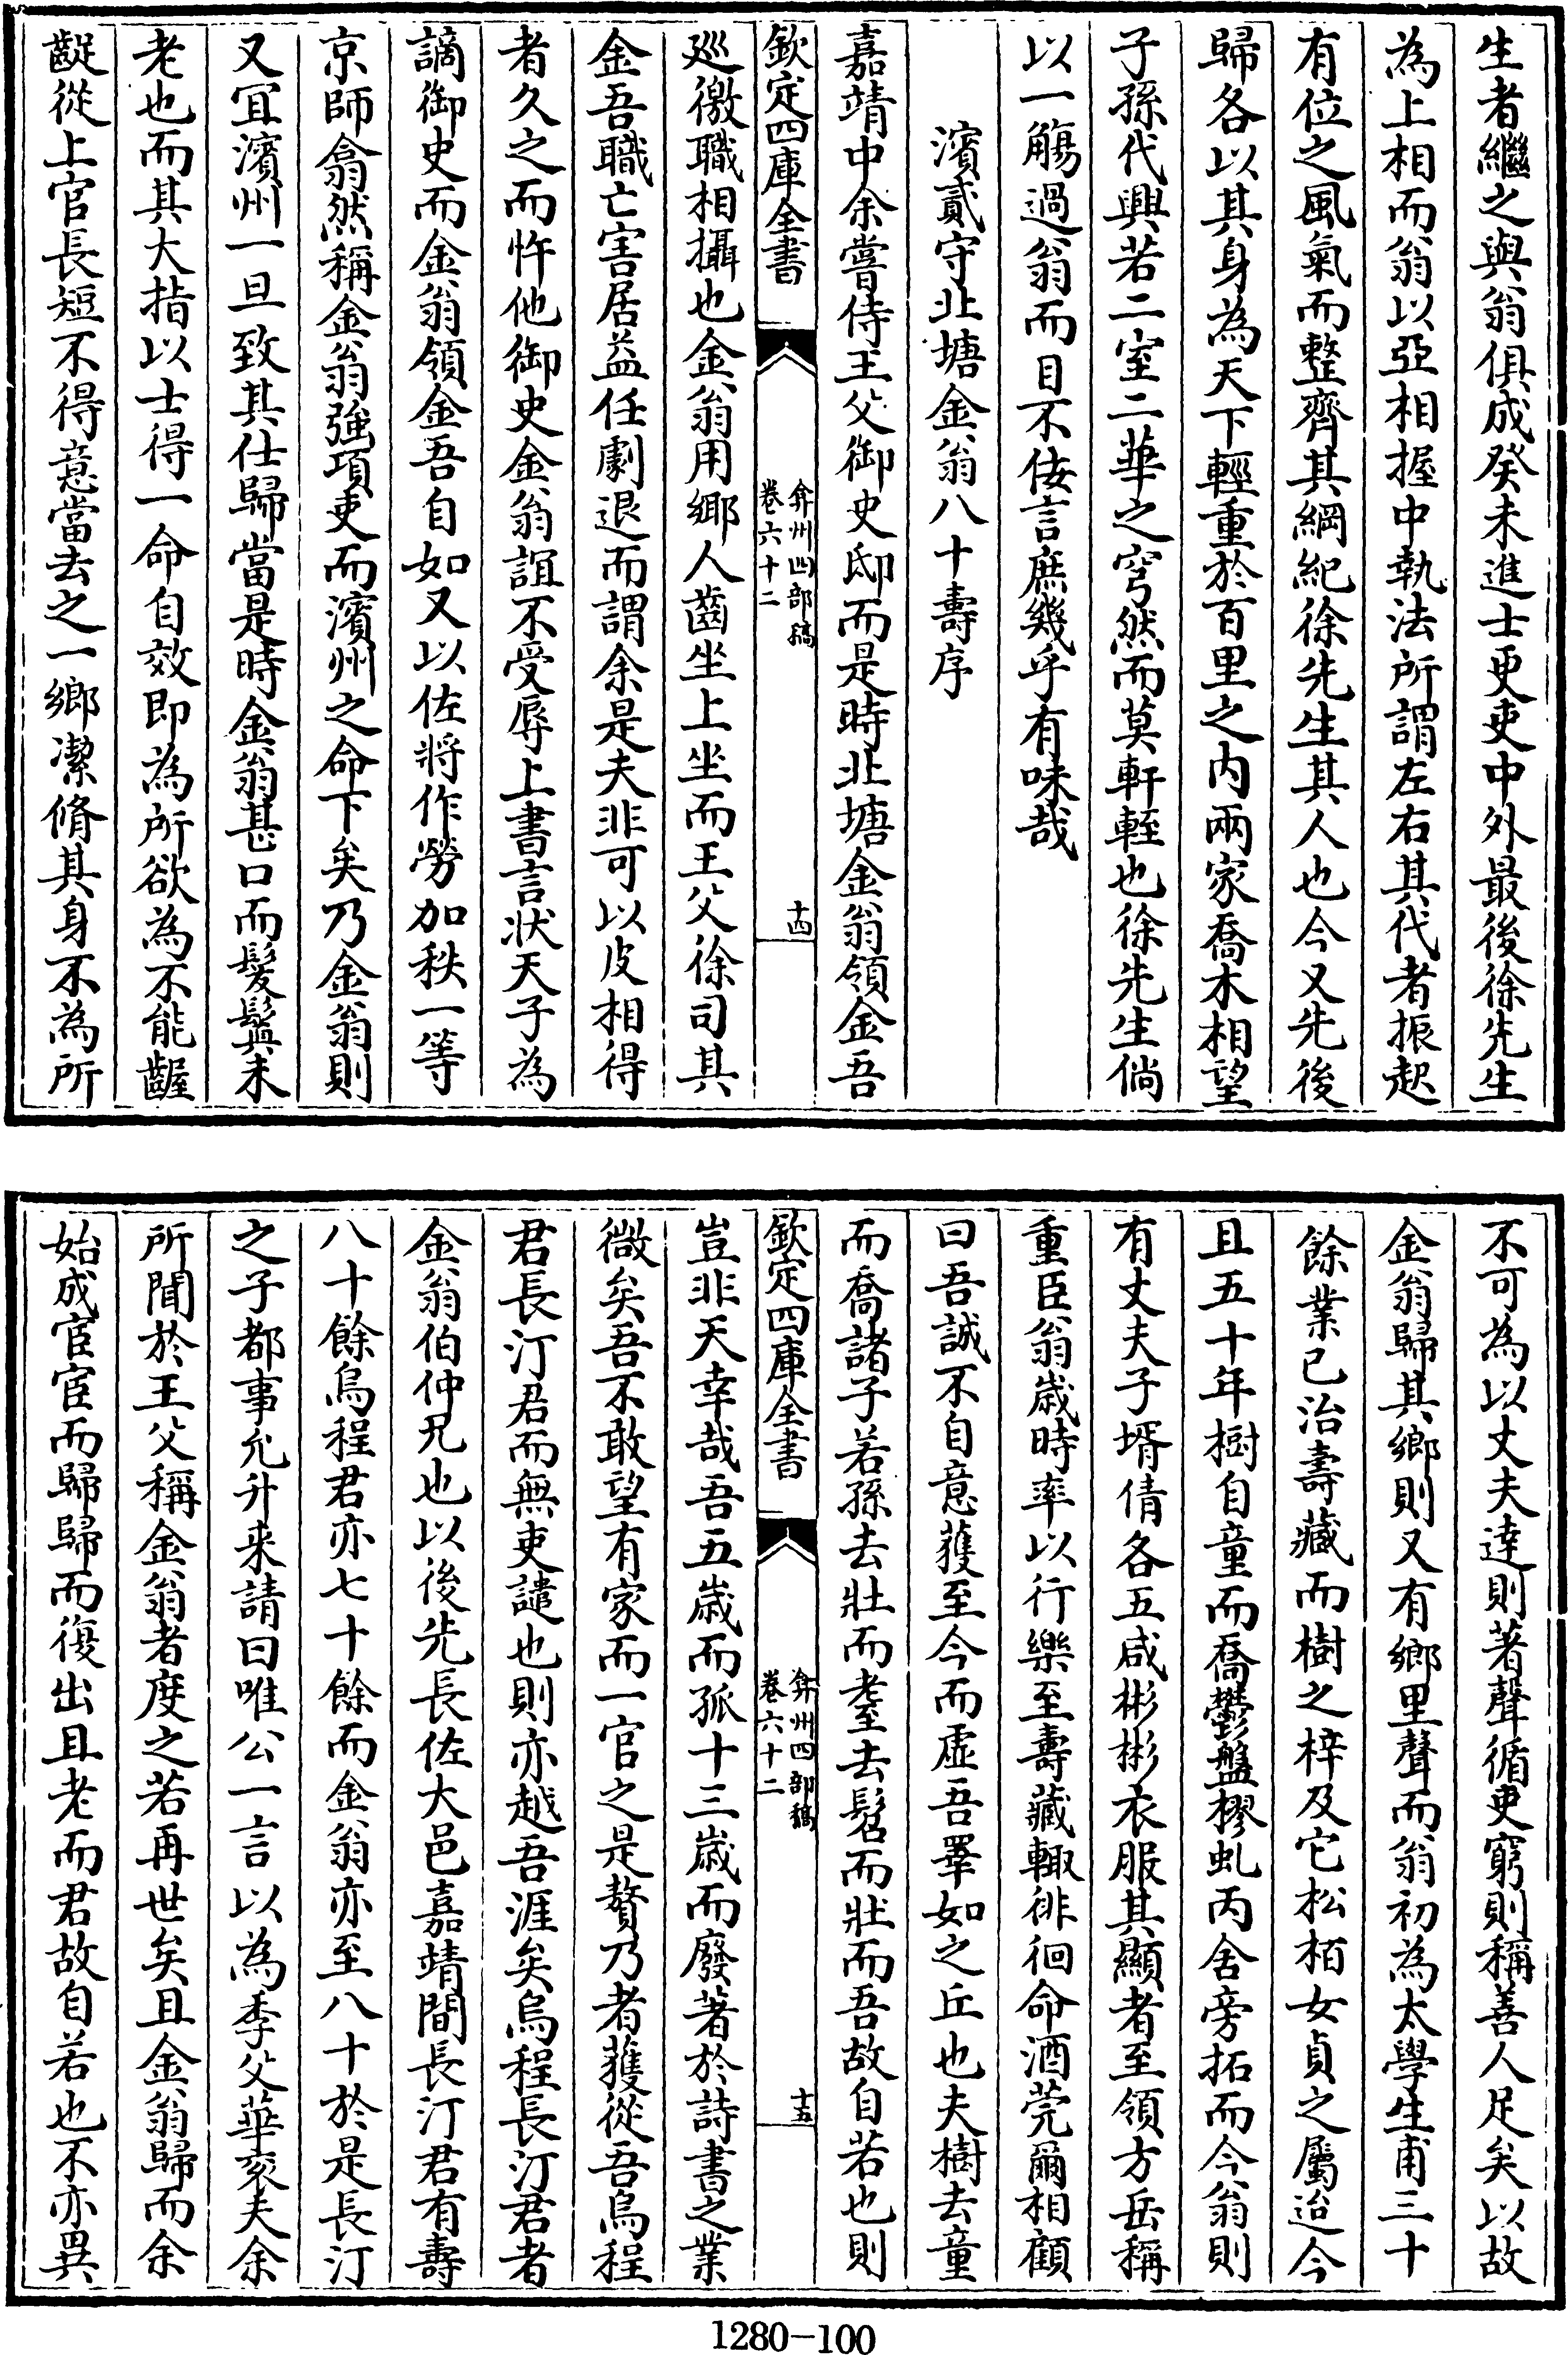 生者繼之與翁俱成癸未進士更吏中外最後徐先生
為上相而翁以亞相握中執法所謂左右其代者振起
有位之風氣而整齊其綱紀徐先生其人也今又先後
歸各以其身為天下輕重於百里之內兩家喬木相望
子孫代興若二室二華之穹然而莫軒輊也徐先生倘
以一觴過翁而目不佞言庶幾乎有味哉
濱貳守北塘金翁八十壽序
嘉靖中余嘗侍王父御史邸而是時北塘金翁領金吾
欽定四庫全書
弇州四部稿
卷六十二
十四
廵徼職相攝也金翁用鄉人齒坐上坐而王父徐司其
金吾職亡害居益任劇退而謂余是夫非可以皮相得
者久之而忤他御史金翁誼不受辱上書言狀天子為
謫御史而金翁領金吾自如又以佐將作勞加秩一等
京師翕然稱金翁強項吏而濱州之命下矣乃金翁則
又冝濱州一旦致其仕歸當是時金翁甚口而髮鬒未
老也而其大指以士得一命自效即為所欲為不能齷
齪從上官長短不得意當去之一鄉潔脩其身不為所
不可為以丈夫達則著聲循吏窮則稱善人足矣以故
金翁歸其鄉則又有鄉里聲而翁初為太學生甫三十
餘業已治壽藏而樹之梓及它松栢女貞之屬迨今
且五十年樹自童而喬鬱盤樛虬丙舍旁拓而今翁則
有丈夫子壻倩各五咸彬彬衣服其顯者至領方岳稱
重臣翁歲時率以行樂至壽藏輙徘徊命酒莞爾相顧
曰吾誠不自意獲至今而虛吾睪如之丘也夫樹去童
而喬諸子若孫去壯而耊去髫而壯而吾故自若也則
欽定四庫全書
弇州四部稿
卷六十二
十五
豈非天幸哉吾五歲而孤十三歲而廢著於詩書之業
微矣吾不敢望有家而一官之是贅乃者獲從吾烏程
君長汀君而無吏譴也則亦越吾涯矣烏程長汀君者
金翁伯仲兄也以後先長佐大邑嘉靖間長汀君有壽
八十餘烏程君亦七十餘而金翁亦至八十於是長汀
之子都事允升来請曰唯公一言以為季父華衮夫余
所聞於王父稱金翁者度之若再世矣且金翁歸而余
始成宦宦而歸歸而復出且老而君故自若也不亦異
1280-100